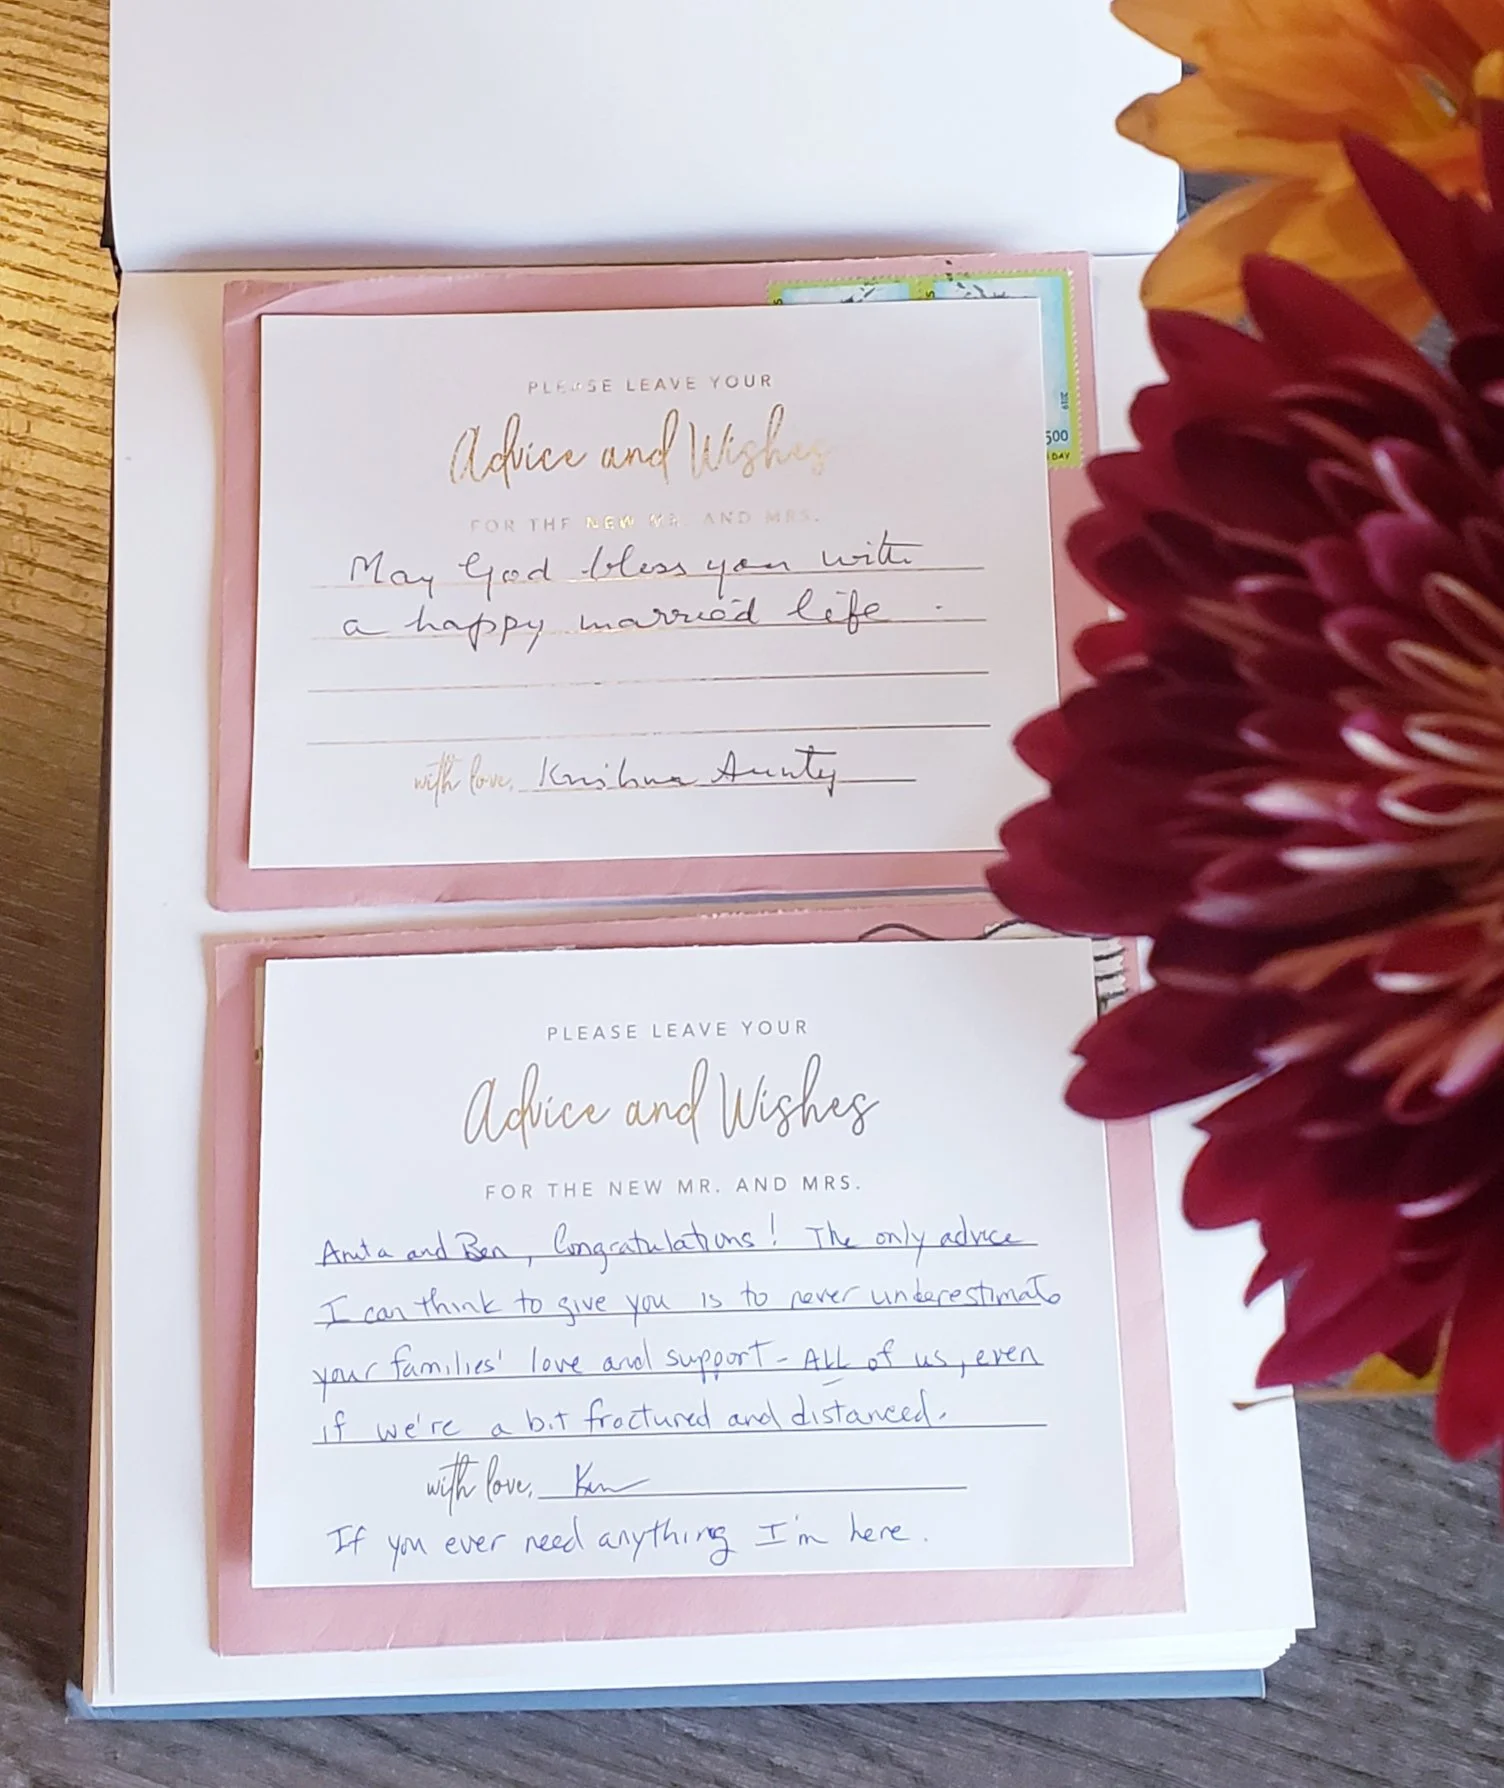 PLEASE LEAVE YOUR
Advice and Wishes
FOR THE NEW MR. AND MRS.
May God bless you with
a happy married life.
with love, Krishna Aunty
2019
500
DAY
PLEASE LEAVE YOUR
Advice and Wishes
FOR THE NEW MR. AND MRS.
Anita and Ben, Congratulations! The only advice
I can think to give you is to never underestimate
your families' love and support - ALL of us, even
if we're a bit fractured and distanced.
with love, Ken
If you ever need anything I'm here.